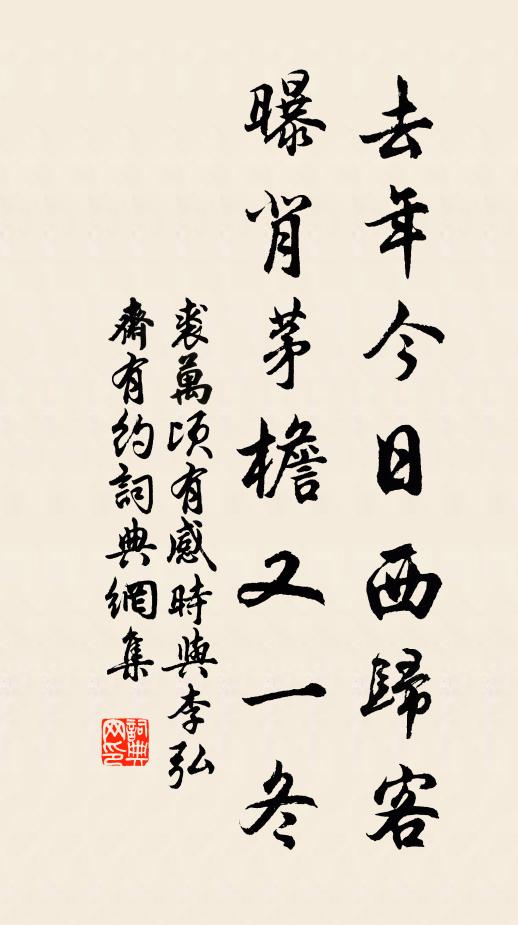 去年今日西歸客
曝背茅檐又一冬
裘萬頃有感時與李弘
齋有約詞典網集
詞典網印